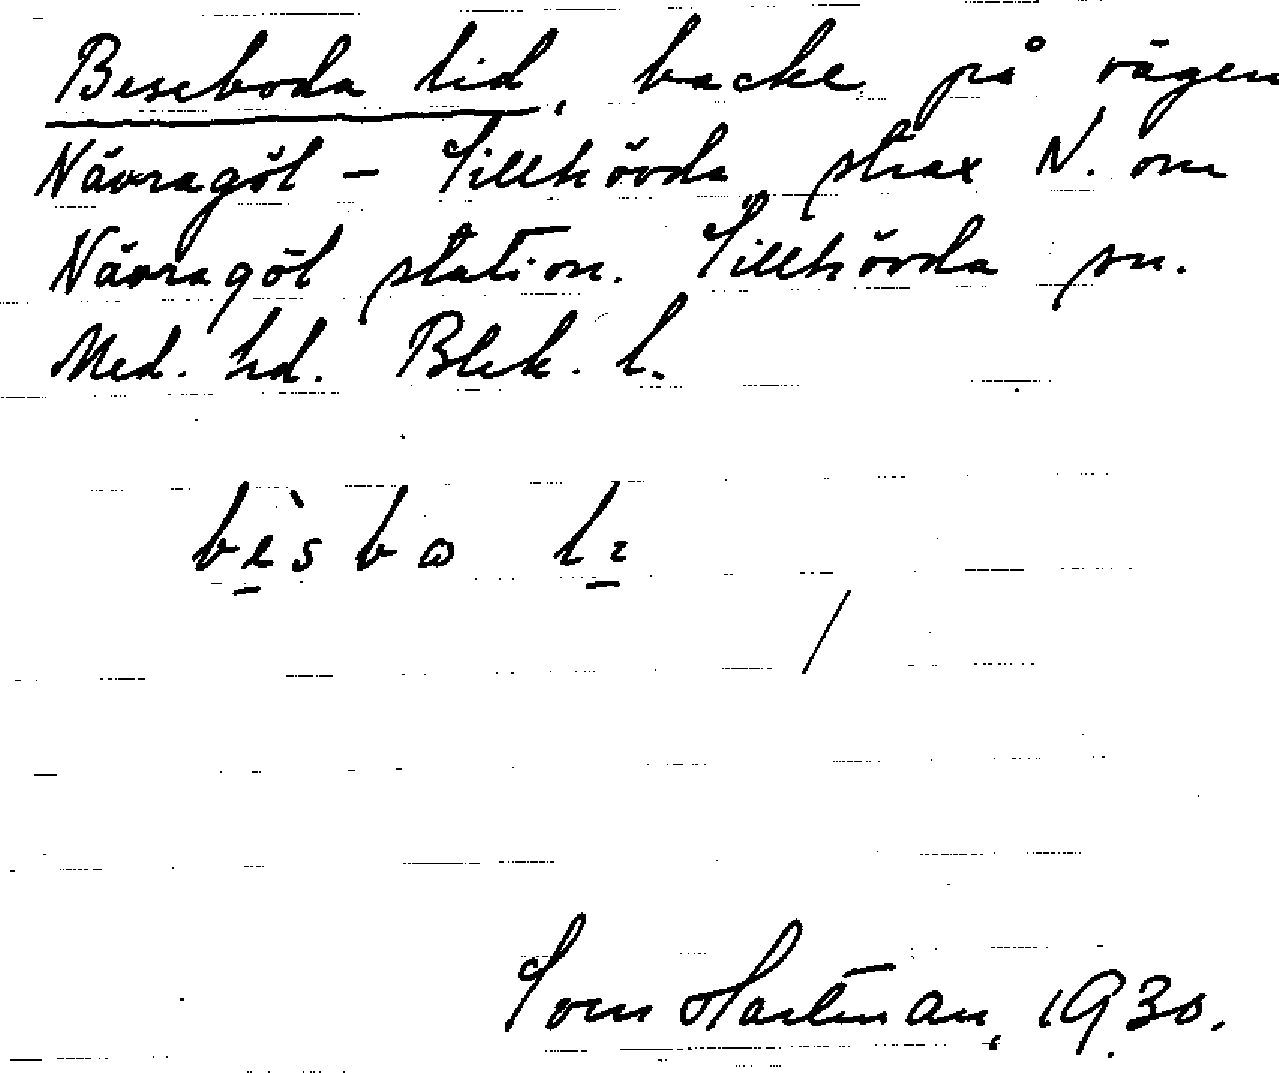 Beseboda lid, backe på vägen
Nävragöl - Tillhövda strax N. om
Nävragöl station. Tillhövda sn.
Med. hd. Blek. l.
bèsbo li
Sven Hartman, 1930.